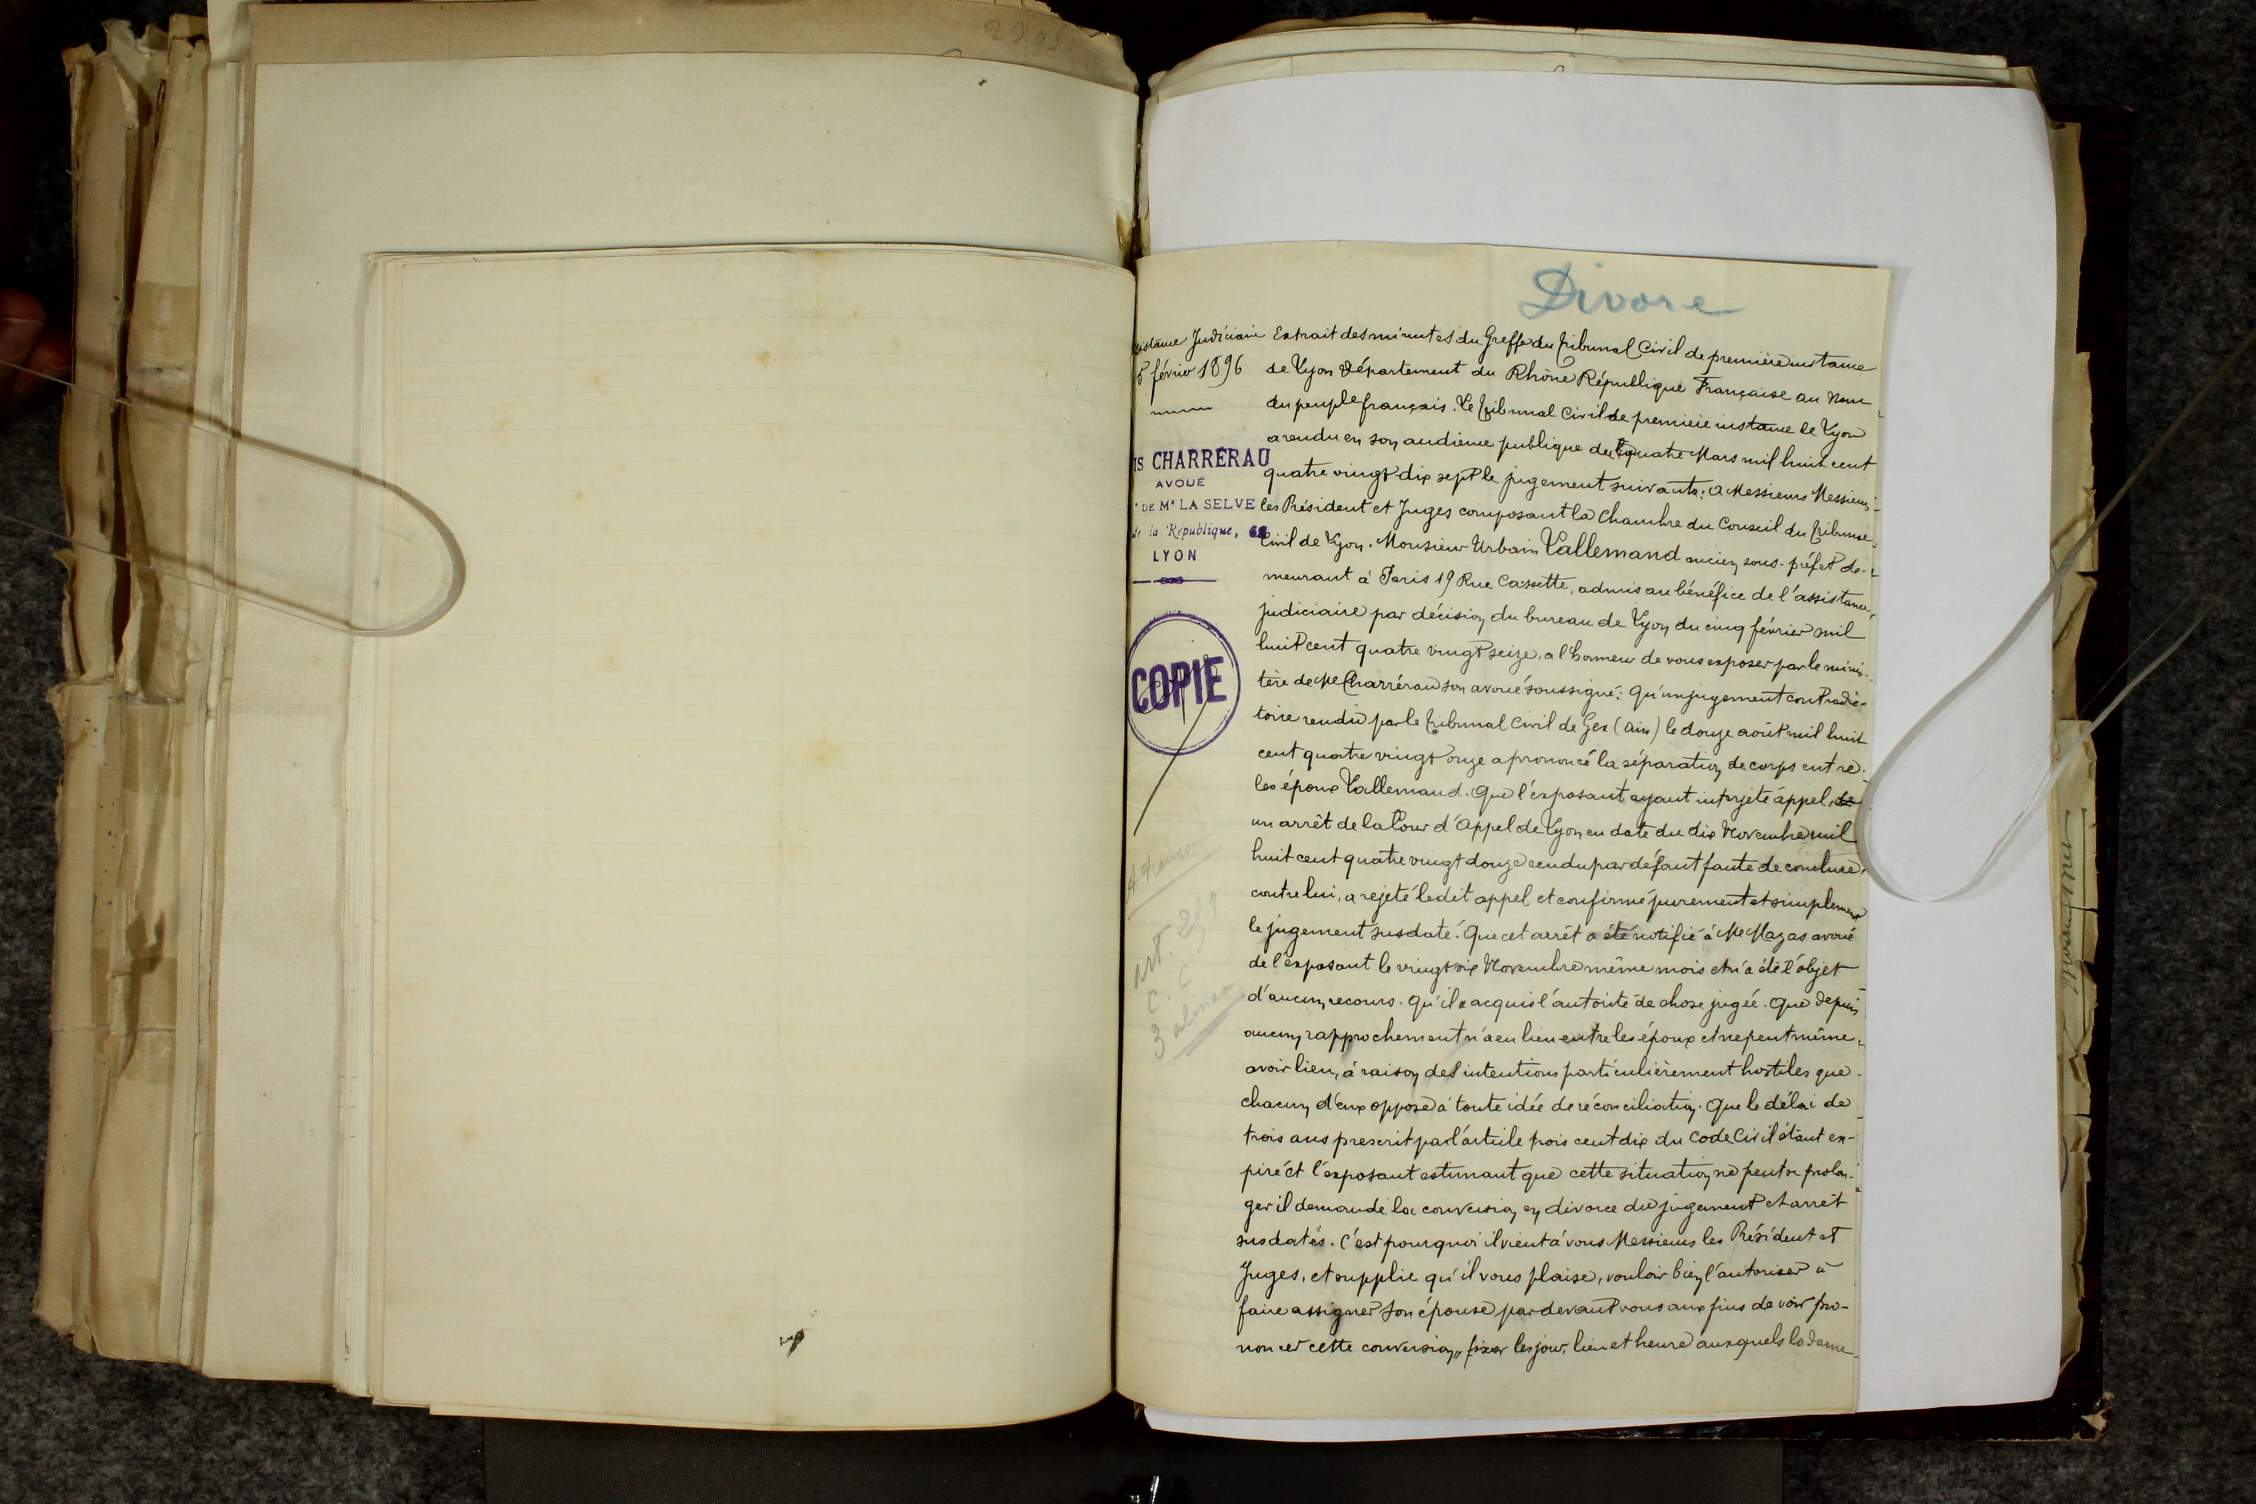 Divorce
Judiciaire
février 1896
IS CHARRÉRAU
AVOUÉ
DE Me LA SELVE
de la République, 62
LYON
COPIE
art.
C. C
3
Extrait des minutes du Greffe du Tribunal Civil de première instance
de Lyon Département du Rhône République Française au Nom
du peuple français. Le Tribunal Civil de première instance de Lyon
a rendu en son audience publique du quatre Mars mil huit cent
quatre vingt dix sept le jugement suivant: a Messieurs Messieurs
les Président et Juges composant la Chambre du Conseil du Tribunal
Civil de Lyon. Monsieur Urbain Vallemand ancien sous-préfet de-
meurant à Paris 19 Rue Cassette, admis au bénéfice de l'assistance
judiciaire par décision du bureau de Lyon du cinq février mil
huit cent quatre vingt seize, a l'honneur de vous exposer par le minis-
tère de Me Charrérau son avoué soussigné: Qu'un jugement contradic-
toire rendu par le Tribunal Civil de Gex (Ain) le douze août mil huit
cent quatre vingt onze a prononcé la séparation de corps entre
les époux Vallemand. Que l'exposant ayant interjeté appel, de
un arrêt de la Cour d'Appel de Lyon en date du dix Novembre mil
huit cent quatre vingt douze rendu par défaut faute de conclure,
contre lui, a rejeté ledit appel et confirmé purement et simplement
le jugement susdaté. Que cet arrêt a été notifié à Me Mazas avoué
de l'exposant le vingt six Novembre même mois et n'a été l'objet
d'aucun recours. Qu'il a acquis l'autorité de chose jugée. Que depuis
aucun rapprochement n'a eu lieu entre les époux et ne peut même
avoir lieu, à raison des intentions particulièrement hostiles que
chacun d'eux oppose à toute idée de réconciliation. Que le délai de
trois ans prescrit par l'article trois cent dix du Code Civil étant ex-
piré et l'exposant estimant que cette situation ne peut se prolon-
ger il demande la conversion en divorce du jugement et arrêt
susdatés. C'est pourquoi il vient à vous Messieurs les Président et
Juges, et supplie qu'il vous plaise, vouloir bien l'autoriser à
faire assigner son épouse par devant vous aux fins de voir pro-
noncer cette conversion, fixer les jour, lieu et heure auxquels la dame